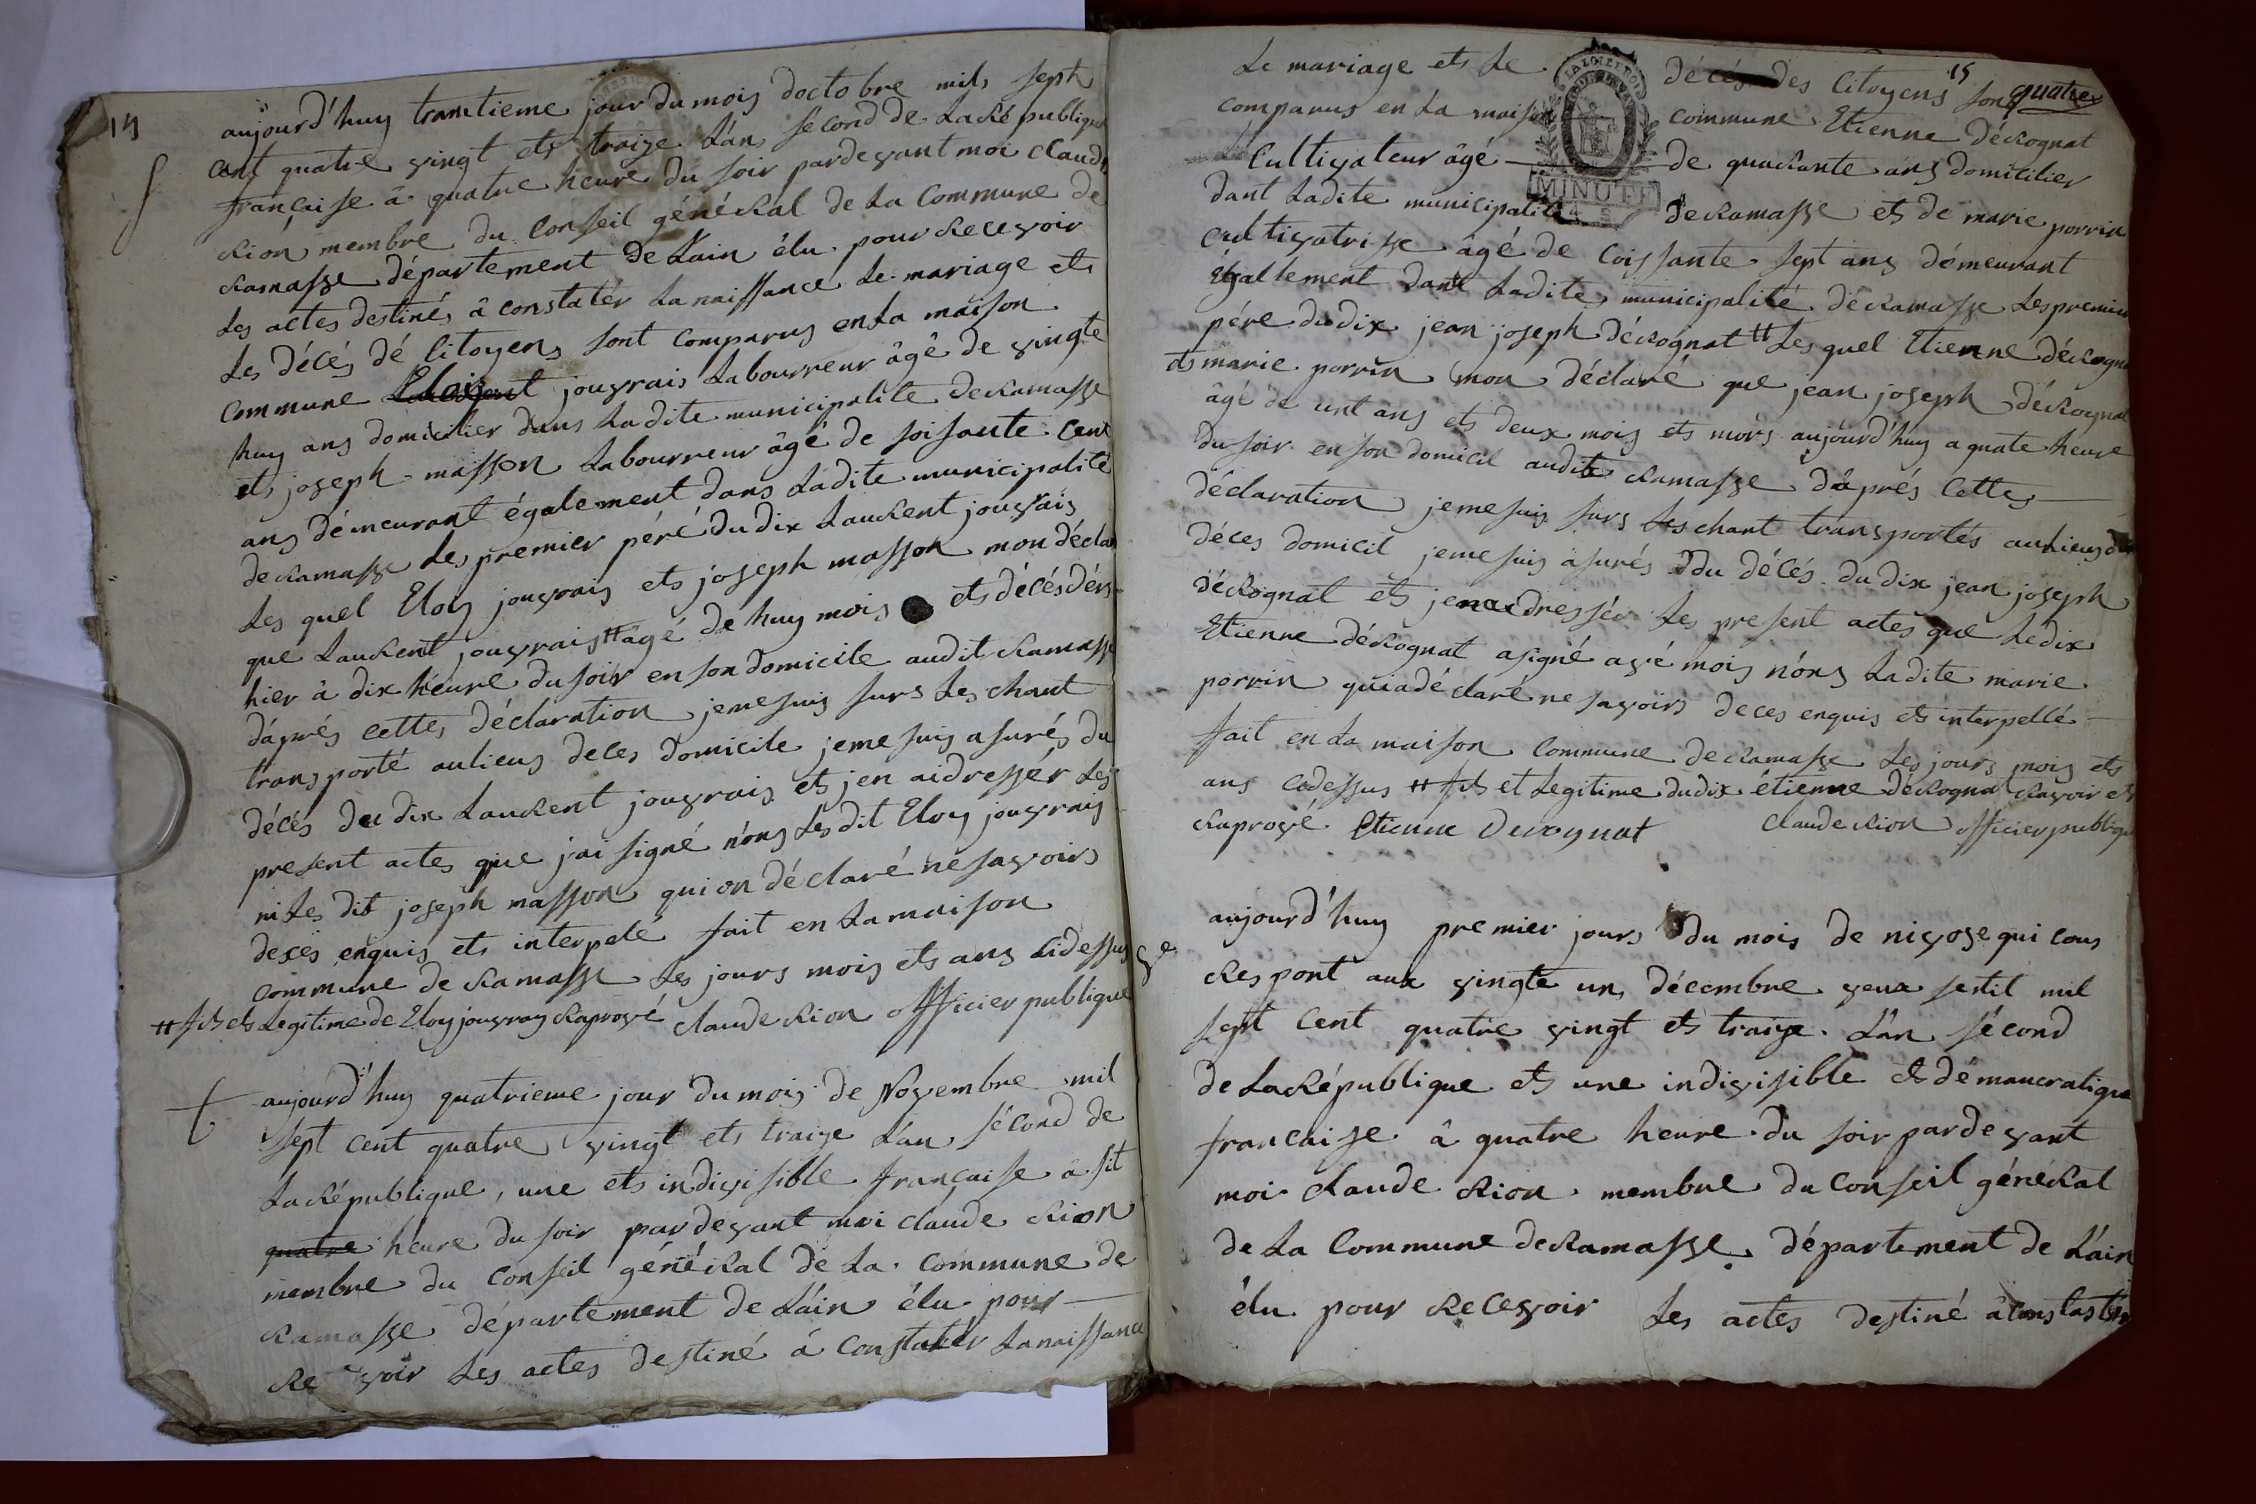 14
aujourd'huy trantieme jour du mois doctobre mils sept
cent quatre vingt ets traize L'an sécond de La République
française â quatre heure du soir pardevant moi Claude
Rion membre du Conseil général de La Commune de
Ramasse département de L'ain élu pour Recevoir
Les actes destinés â constatér La naissance Le mariage ets
Les décés dé Citoyens sont comparus en La maison
commune Eloi jouvrais Labourreur âgê de vingte
huy ans domicilier dans Ladite municipalite de Ramasse
ets joseph masson Labourreur âgé de soisante cent
ans démeurant également dans Ladite municipalité
de Ramasse Les premier péré du dix Laurent jouvrais
Les quel Eloy jouvrais ets joseph masson mon déclar
que Laurent jouvrais # agé de huy mois ets décés dérs
hier à dix heure du soir en son domicile audit Ramasse
d'aprés cettes déclaration jeme suis surs Les chant
transporté aulieus deces domicile jeme suis asurés du
décés du dix Laurent jouvrais ets jen aidressér Les
present actes que jai signé n'ons Les dit Eloy jouvray
ni Les dit joseph masson qui on déclaré ne savoirs
deces enquis ets interpelé fait en La maison
commune de Ramasse Les jours mois ets ans cidessus
# fils ets Legitime de Eloy jouvray Raprové Claude Rion officier publique
aujourd'huy quatrieme jour du mois de Novembre mil
sept cent quatre vingt ets traize L'an sécond de
La République, une ets indivisible française â sit
quatre heure du soir pardevant moi claude Rion
membre du Conseil général de La Commune de
Ramasse département de L'ain élu pour
Recevoir Les actes destiné á Constatér La naissance
15
quatre
Le mariage ets Le décés des Citoyens son
comparus en La maison commune Etienne déRognat
Cultivateur âgé de quarante ans domicilier
dant Ladite municipalité de Ramasse ets de marie porrin
cultivatrisse âgé de Soissante sept ans démeurant
égallement dans Ladite municipalité de Ramasse Les premier
pére du dix jean joseph déRognat # Les quel Etienne déRogna
ets marie porrin mon déclaré que jean joseph déRognat
âgé de unt ans ets deux mois ets mors aujourd'huy a quate heure
du soir en son domicil audite Ramasse d'aprés Cettes
déclaration jeme suis surs Les chant transportés au Lieus de
déces domicil jeme suis asurés du décés du dix jean joseph
déRognat ets jenaidressér Les present actes que Le dix
Etienne déRognat asigné avé mois n'ons Ladite marie
porrin quiadéclaré ne savoirs deces enquis ets interpellé
fait en La maison Commune de Ramasse Les jours mois ets
ans cidessus # fils et Legitime du dix étienne déRognat Ravoir ets
Raprové Etienne Derognat Claude Rion officier publique
aujourd'huy premier jours du mois de nivose qui cous
Respont aux vingte un décembre veux sestil mil
sept Cent quatre vingt ets traize L'an sécond
de La République ets une indivisible ets démaucratique
française â quatre heure du soir pardevant
moi claude Rion membre du Conseil général
de La Commune de Ramasse département de L'ain
élu pour Recevoir Les actes destiné âConstastér
LA LOI ET LE ROI
MINUTE